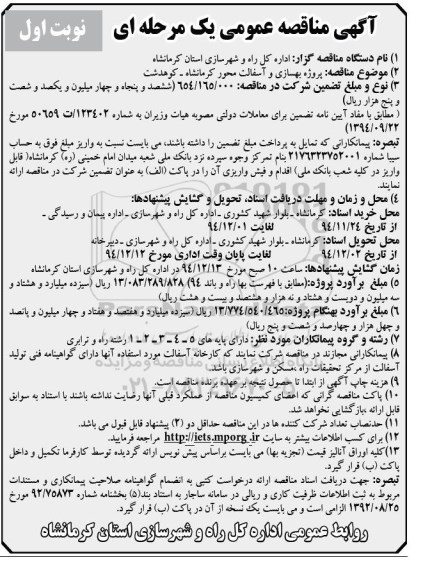 آگهی مناقصه عمومی یک مرحله ای
نوبت اول
۱) نام دستگاه مناقصه گزار: اداره کل راه و شهرسازی استان کرمانشاه
۲) موضوع مناقصه: پروژه بهسازی و آسفالت محور کرمانشاه ـ کوهدشت
۳) نوع و مبلغ تضمین شرکت در مناقصه: ۶۵۴/۱۶۵/۰۰۰ (ششصد و پنجاه و چهار میلیون و یکصد و شصت
و پنج هزار ریال)
( مطابق با مفاد آیین نامه تضمین برای معاملات دولتی مصوبه هیات وزیران به شماره ۱۲۳۴۰۲/ت ۵۰۶۵۹ مورخ
۱۳۹۴/۰۹/۲۲)
تبصره: پیمانکارانی که تمایل به پرداخت مبلغ تضمین را داشته باشند، می بایست نسبت به واریز مبلغ فوق به حساب
سیبا شماره ۲۱۷۶۴۲۳۷۵۲۰۰۱ بنام تمرکز وجوه سپرده نزد بانک ملی شعبه میدان امام خمینی (ره) کرمانشاه( قابل
واریز در کلیه شعب بانک ملی) اقدام و فیش واریزی آن را در پاکت (الف) به عنوان تضمین شرکت در مناقصه ارائه
نمایند.
۴) محل و زمان و مهلت دریافت اسناد، تحویل و گشایش پیشنهادها:
محل خرید اسناد: کرمانشاه ـ بلوار شهید کشوری ـ اداره کل راه و شهرسازی ـ اداره پیمان و رسیدگی ـ
از تاریخ ۹۴/۱۱/۲۴ لغایت ۹۴/۱۲/۰۱
محل تحویل اسناد: کرمانشاه ـ بلوار شهید کشوری ـ اداره کل راه و شهرسازی ـ دبیرخانه
از تاریخ ۹۴/۱۲/۰۲ لغایت پایان وقت اداری مورخ ۹۴/۱۲/۱۲
زمان گشایش پیشنهادها: ساعت ۱۰ صبح مورخ ۹۴/۱۲/۱۳ در اداره کل راه و شهرسازی استان کرمانشاه
۵) مبلغ برآورد پروژه:(مطابق با فهرست بها راه و باند ۹۴) ۱۳/۰۸۳/۲۸۹/۸۲۸ ریال (سیزده میلیارد و هشتاد و
سه میلیون و دویست و هشتاد و نه هزار و هشتصد و بیست و هشت ریال)
۶) مبلغ برآورد بهنگام پروژه: ۱۳/۷۷۴/۵۴۰/۴۶۵ ریال (سیزده میلیارد و هفتصد و هفتاد و چهار میلیون و پانصد
و چهل هزار و چهارصد و شصت و پنج ریال)
۷) رشته و گروه پیمانکاران مورد نظر: دارای پایه های ۵ ـ ۴ ـ ۳ ـ ۲ ـ ۱ رشته راه و ترابری
۸) پیمانکارانی مجازند در مناقصه شرکت نمایند که کارخانه آسفالت مورد استفاده آنها دارای گواهینامه فنی تولید
آسفالت از مرکز تحقیقات راه ،مسکن و شهرسازی باشد.
۹) هزینه چاپ آگهی از ابتدا تا حصول نتیجه بر عهده برنده مناقصه است.
۱۰) پاکت مناقصه گرانی که اعضای کمیسیون مناقصه از عملکرد قبلی آنها رضایت نداشته باشند با استناد به سوابق
قابل ارائه ،بازگشایی نخواهد شد.
۱۱) حدنصاب تعداد شرکت کننده ها در این مناقصه حداقل دو (۲) پیشنهاد قابل قبول می باشد.
۱۲) برای کسب اطلاعات بیشتر به سایت http://iets.mporg.ir مراجعه فرمایید.
۱۳)کلیه اوراق آنالیز قیمت (تجزیه بها) می بایست براساس پیش نویس ارائه گردیده توسط کارفرما تکمیل و داخل
پاکت (ب) قرار گیرد.
تبصره: جهت دریافت اسناد مناقصه ارائه درخواست کتبی به انضمام گواهینامه صلاحیت پیمانکاری و مستندات
مربوط به ثبت اطلاعات ظرفیت کاری و ریالی در سامانه ساجار به استناد بند(۵) بخشنامه شماره ۹۲/۷۵۸۷۳ مورخ
۱۳۹۲/۰۸/۲۵ الزامی است و می بایست یک نسخه از آن در پاکت (ب) قرار گیرد.
روابط عمومی اداره کل راه و شهرسازی استان کرمانشاه